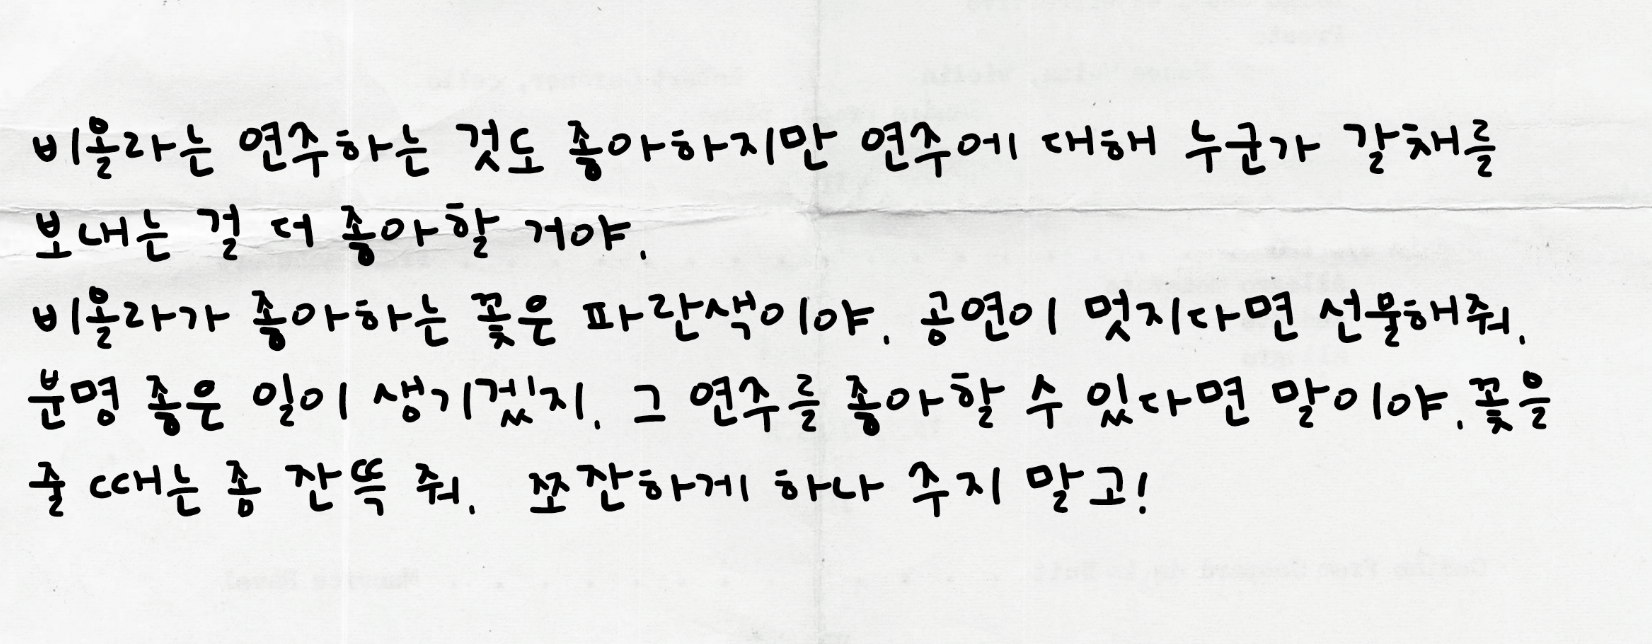 비올라는 연주하는 것도 좋아하지만 연주에 대해 누군가 갈채를
보내는 걸 더 좋아할 거야.
비올라가 좋아하는 꽃은 파란색이야. 공연이 멋지다면 선물해줘.
분명 좋은 일이 생기겠지. 그 연주를 좋아할 수 있다면 말이야. 꽃을
줄 때는 좀 잔뜩 줘. 쪼잔하게 하나 주지 말고!